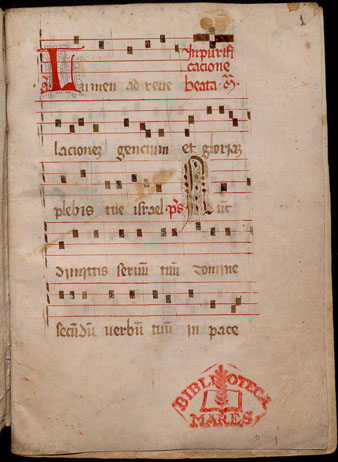 1
In purifi
cacione
Lumen ad reve beata m̄
lacionez gencium et gloriaz
plebis tue israel p̄s Nūc
dimittis servū tuū domine
secūdū verbū tuū in pace
BIBLIOTECA
MARES